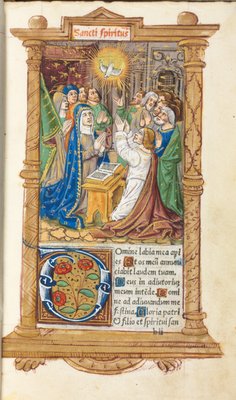 Sancti spiritus
Omine labia mea ape
es Et os meũ annun
ciabit laudem tuam.
Deus in adiutoriũ
meum intẽde. Domi
ne ad adiuvandum me
festina. Gloria patri
& filio et spiritui san